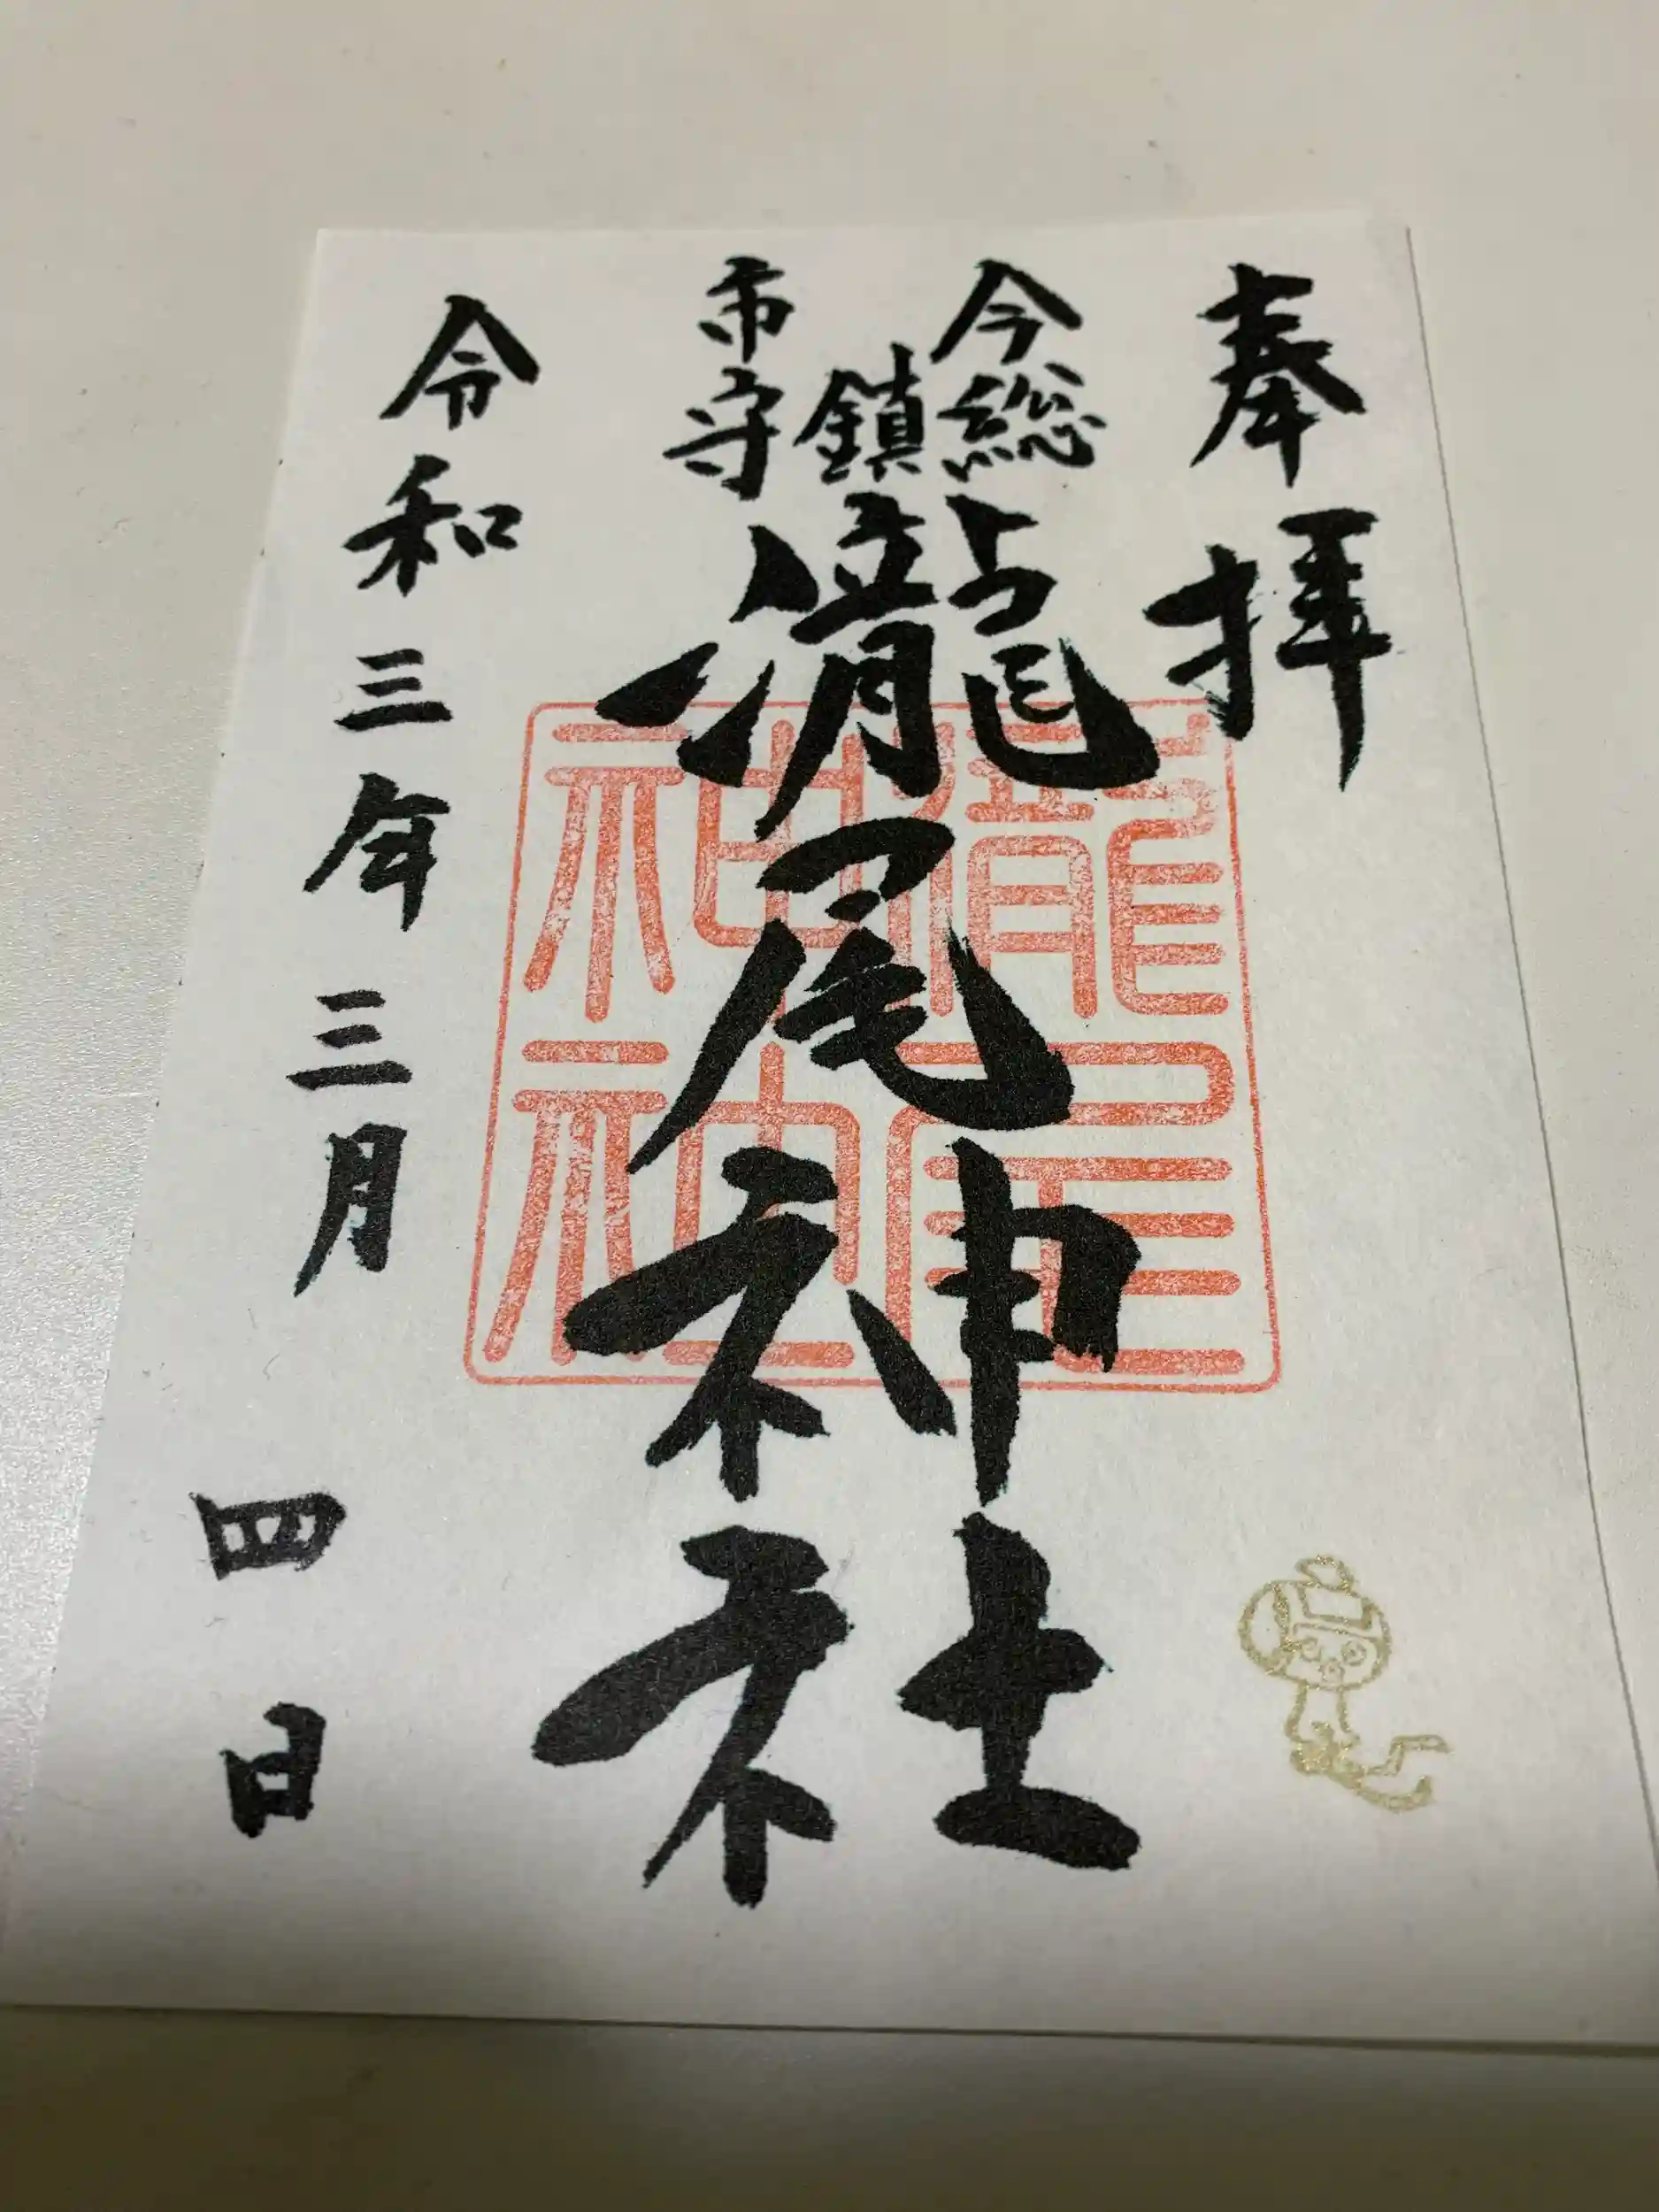 奉拝
今市総鎮守
瀧尾神社
令和三年三月四日
瀧尾
神社